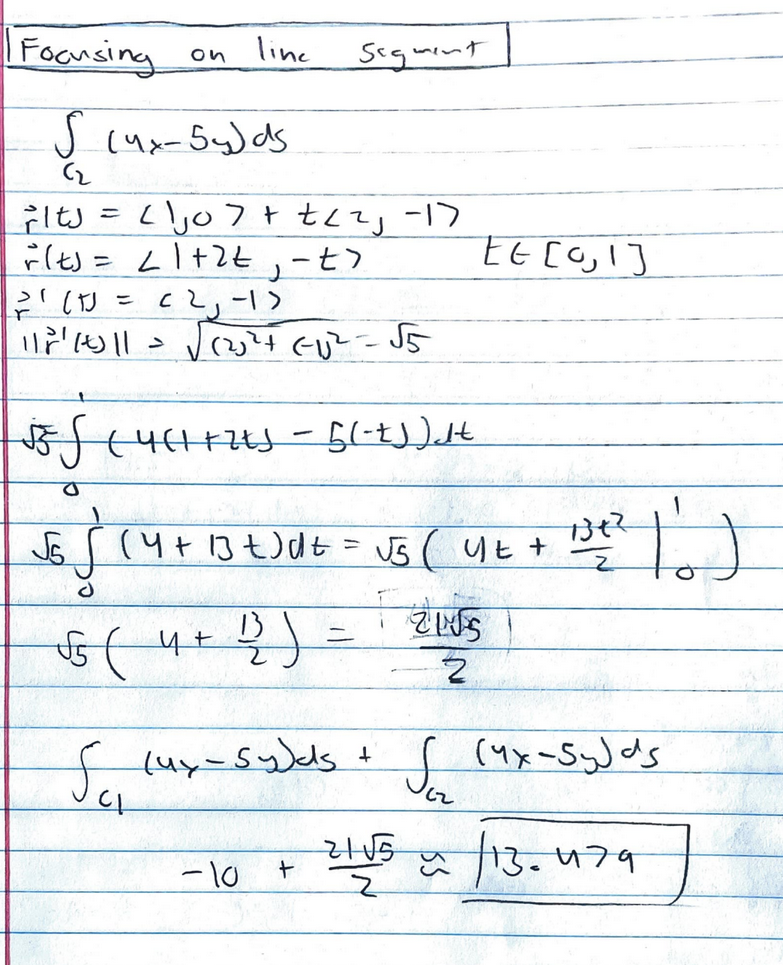 Focusing on line segment
∫_{C2} (4x-5y)ds
r⃗(t) = <1,0> + t<2, -1>
r⃗(t) = <1+2t, -t> t∈[0,1]
r⃗'(t) = <2, -1>
||r⃗'(t)|| = √((2)²+(-1)²) = √5
√5 ∫_0^1 (4(1+2t) - 5(-t))dt
√5 ∫_0^1 (4+13t)dt = √5 (4t + 13t²/2 |_0^1)
√5 (4 + 13/2) = 21√5/2
∫_{C1} (4x-5y)ds + ∫_{C2} (4x-5y)ds
-10 + 21√5/2 ≈ 13.479